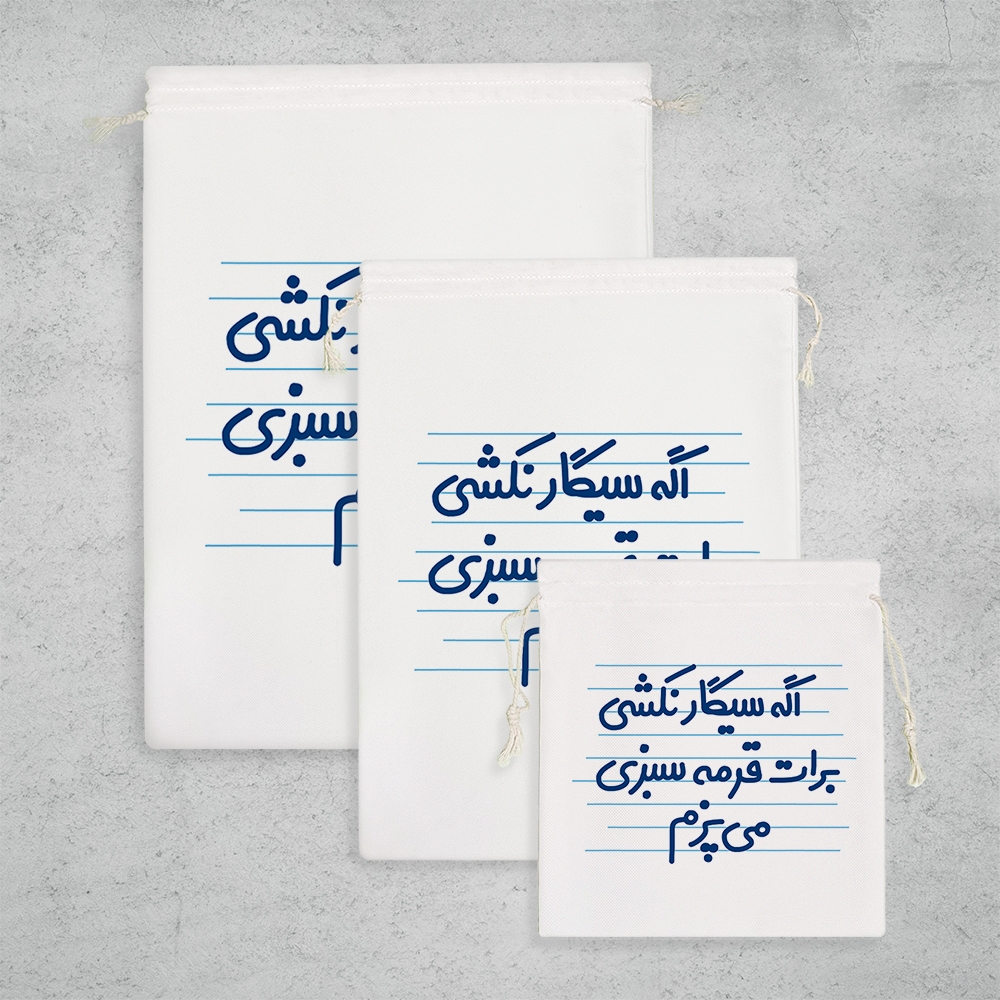 نکشی
سبزی
م
اگه سیگار نکشی
برات قرمه سبزی
م
اگه سیگار نکشی
برات قرمه سبزی
می پزم